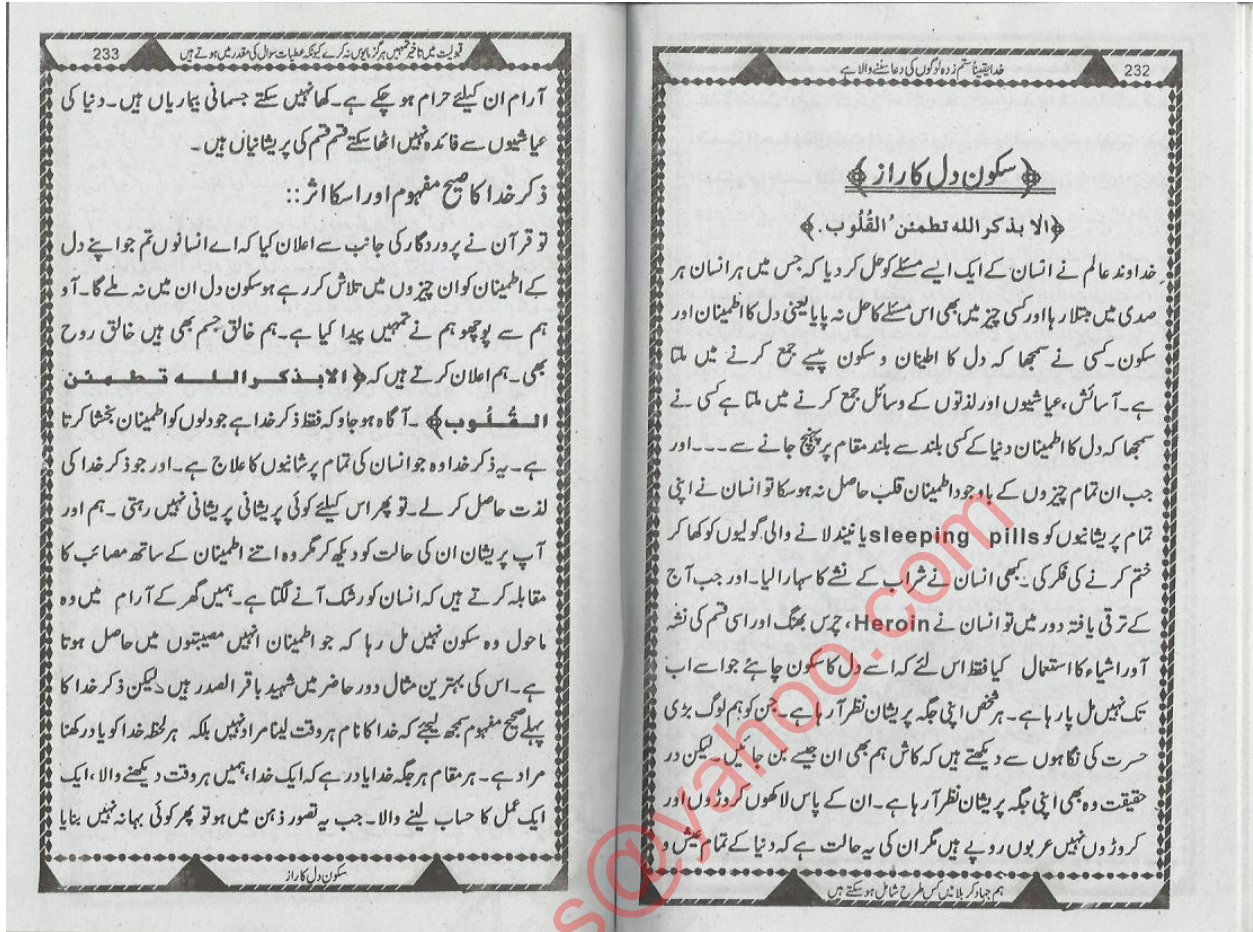 232
خدا یقیناً ستم زدہ لوگوں کی دعا سننے والا ہے
﴿سکون دل کا راز﴾
﴿الا بذکر الله تطمئن القُلُوب.﴾
خداوند عالم نے انسان کے ایک ایسے مسئلے کو حل کر دیا کہ جس میں ہر انسان ہر
صدی میں مبتلا رہا اور کسی چیز میں بھی اس مسئلے کا حل نہ پایا یعنی دل کا اطمینان اور
سکون۔ کسی نے سمجھا کہ دل کا اطینان و سکون پیسے جمع کرنے میں ملتا
ہے۔ آسائش، عیاشیوں اور لذتوں کے وسائل جمع کرنے میں ملتا ہے کسی نے
سمجھا کہ دل کا اطمینان دنیا کے کسی بلند سے بلند مقام پر پہنچ جانے سے ۔۔۔ اور
جب ان تمام چیزوں کے باوجود اطمینان قلب حاصل نہ ہو سکا تو انسان نے اپنی
تمام پریشانیوں کو sleeping pills یا نیند لانے والی گولیوں کو کھا کر
ختم کرنے کی فکر کی۔ کبھی انسان نے شراب کے نشے کا سہارا لیا۔ اور جب آج
کے ترقی یافتہ دور میں تو انسان نے Heroin، چرس بھنگ اور اسی قسم کی نشہ
آور اشیاء کا استعمال کیا فقط اس لئے کہ اسے دل کا سکون چاہئے جو اسے اب
تک نہیں مل پا رہا ہے۔ ہر شخص اپنی جگہ پریشان نظر آ رہا ہے۔ جن کو ہم لوگ بڑی
حسرت کی نگاہوں سے دیکھتے ہیں کہ کاش ہم بھی ان جیسے بن جائیں۔ لیکن در
حقیقت وہ بھی اپنی جگہ پریشان نظر آ رہا ہے۔ ان کے پاس لاکھوں کروڑوں اور
کروڑوں نہیں عربوں روپے ہیں مگر ان کی یہ حالت ہے کہ دنیا کے تمام عیش و
ہم جہاد کربلا میں کس طرح شامل ہو سکتے ہیں
233
قبولیت میں تاخیر تمہیں ہرگز مایوس نہ کرے کیونکہ عطیات سوال کی مقدر میں ہوتے ہیں
آرام ان کیلئے حرام ہو چکے ہے۔ کھا نہیں سکتے جسمانی بیماریاں ہیں۔ دنیا کی
عیاشیوں سے فائدہ نہیں اٹھا سکتے قسم قسم کی پریشانیاں ہیں۔
ذکر خدا کا صحیح مفہوم اور اسکا اثر::
تو قرآن نے پروردگار کی جانب سے اعلان کیا کہ اے انسانوں تم جو اپنے دل
کے اطمینان کو ان چیزوں میں تلاش کر رہے ہو سکون دل ان میں نہ ملے گا۔ آو
ہم سے پوچھو ہم نے تمہیں پیدا کیا ہے۔ ہم خالق جسم بھی ہیں خالق روح
بھی۔ ہم اعلان کرتے ہیں کہ ﴿الا بذکر اللہ تطمئن
القُلُوب﴾ ۔ آگاہ ہو جاو کہ فقط ذکر خدا ہے جو دلوں کو اطمینان بخشا کرتا
ہے۔ یہ ذکر خدا وہ جو انسان کی تمام پرشانیوں کا علاج ہے۔ اور جو ذکر خدا کی
لذت حاصل کر لے۔ تو پھر اس کیلئے کوئی پریشانی پریشانی نہیں رہتی۔ ہم اور
آپ پریشان ان کی حالت کو دیکھ کر مگر وہ اتنے اطمینان کے ساتھ مصائب کا
مقابلہ کرتے ہیں کہ انسان کو رشک آنے لگتا ہے۔ ہمیں گھر کے آرام میں وہ
ماحول وہ سکون نہیں مل رہا کہ جو اطمینان انہیں مصیبتوں میں حاصل ہوتا
ہے۔ اس کی بہترین مثال دور حاضر میں شہید باقر الصدر ہیں۔ لیکن ذکر خدا کا
پہلے صحیح مفہوم سمجھ لیجئے کہ خدا کا نام ہر وقت لینا مراد نہیں بلکہ ہر لحظہ خدا کو یاد رکھنا
مراد ہے۔ ہر مقام ہر جگہ خدا یاد رہے کہ ایک خدا، ہمیں ہر وقت دیکھنے والا، ایک
ایک عمل کا حساب لینے والا۔ جب یہ تصور ذہن میں ہو تو پھر کوئی بہانہ نہیں بنایا
سکون دل کا راز
s@yahoo.com